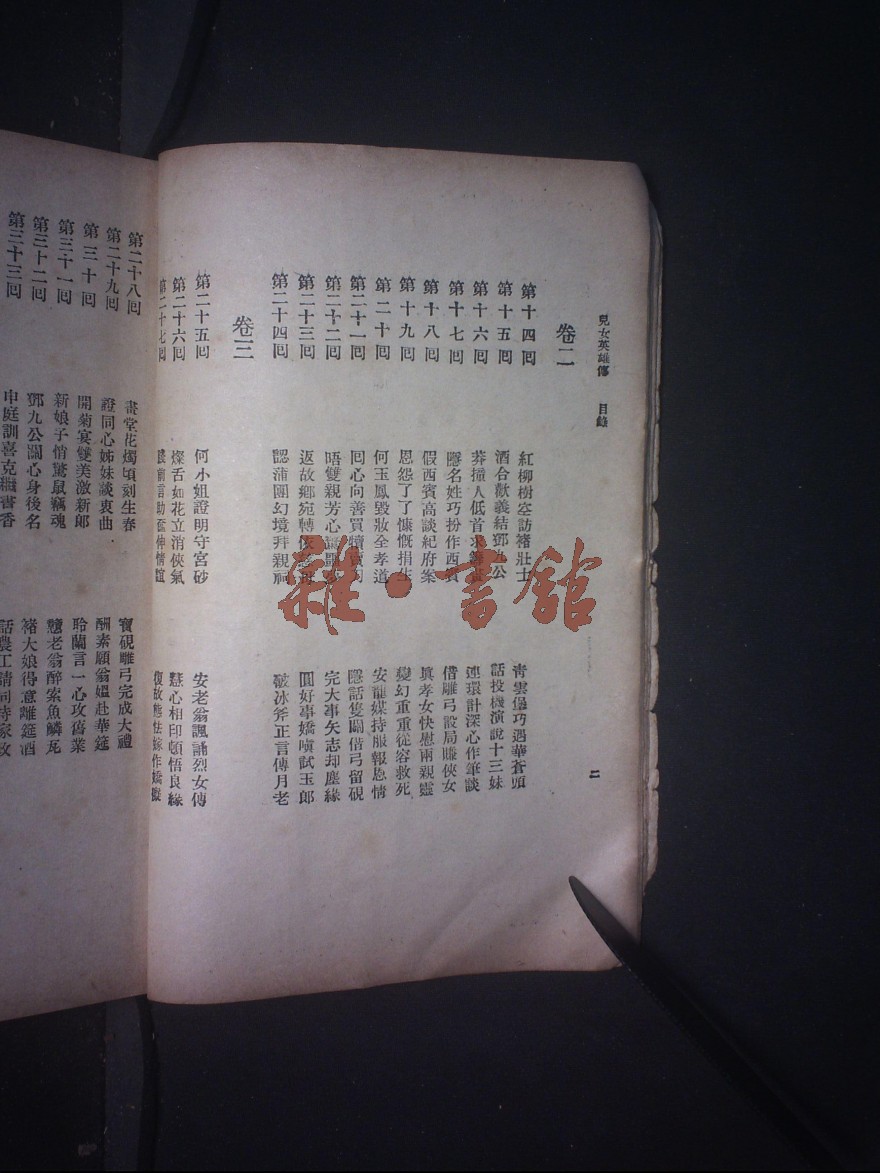 兒女英雄傳 目錄
二
卷二
第十四囘 紅柳樹空訪褚壯士 靑雲堡巧遇華蒼頭
第十五囘 酒合歡義結鄧九公 話投機演說十三妹
第十六囘 莽撞人低首求 連環計深心作筆談
第十七囘 隱名姓巧扮作西賓 借雕弓設局賺俠女
第十八囘 假西賓高談紀府案 眞孝女快慰兩親靈
第十九囘 恩怨了了慷慨捐生 變幻重重從容救死
第二十囘 何玉鳳毀妝全孝道 安龍媒持服報恩情
第二十一囘 囘心向善買犢賣 隱話隻關借弓留硯
第二十二囘 晤雙親芳心 完大事矢志却塵緣
第二十三囘 返故鄉宛轉 圓好事嬌嗔試玉郎
第二十四囘 認蒲團幻境拜親祠 破冰斧正言傳月老
卷三
第二十五囘 何小姐證明守宮砂 安老翁諷誦烈女傳
第二十六囘 燦舌如花立消俠氣 慧心相印頓悟良緣
第二十七囘 踐前言助奩伸情誼 復故態怯嫁作嬌癡
第二十八囘 畫堂花燭頃刻生春 寶硯雕弓完成大禮
第二十九囘 證同心姊妹談衷曲 酬素願翁媼赴華筵
第三十囘 開菊宴雙美激新郞 聆蘭言一心攻舊業
第三十一囘 新娘子悄驚鼠竊魂 戇老翁醉索魚鱗瓦
第三十二囘 鄧九公關心身後名 褚大娘得意離筵酒
第三十三囘 申庭訓喜克繼書香 話農工請同持家政
雜·書館